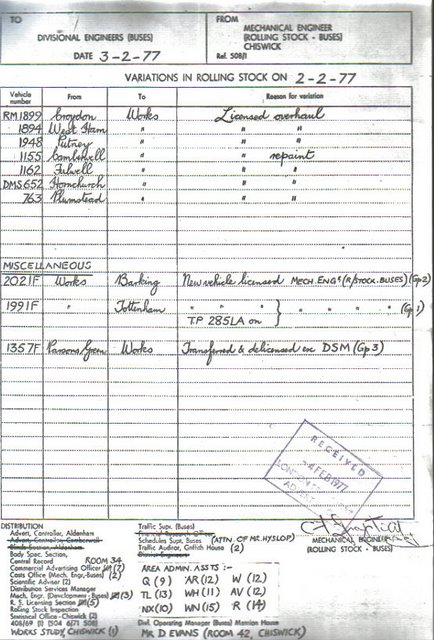 TO
DIVISIONAL ENGINEERS (BUSES)
DATE 3-2-77
FROM
MECHANICAL ENGINEER
(ROLLING STOCK - BUSES)
CHISWICK
Ref. 508/1
VARIATIONS IN ROLLING STOCK ON 2-2-77
Vehicle number From To Reason for variation
RM1899 Croydon Works Licensed overhaul
1894 West Ham " " "
1948 Putney " " "
1155 Camberwell " " repaint
1162 Fulwell " " "
DMS652 Hornchurch " " "
763 Plumstead " " "
MISCELLANEOUS
2021F Works Barking New vehicle licensed MECH.ENGR (R/STOCK.BUSES) (Gp 2)
1991F " Tottenham " " " } " " " " (Gp 1)
T.P 285LA on
1357F Parsons Green Works Transferred & delicensed ex DSM (Gp 3)
RECEIVED
4 FEB 1977
LONDON
ADVERT
MECHANICAL ENGINEER
(ROLLING STOCK - BUSES)
DISTRIBUTION
Advert. Controller, Aldenham
Advert. Controller, Camberwell
Body Spec. Section,
Central Record ROOM 34
Commercial Advertising Officer (7)
Costs Office (Mech. Engr, Buses) (2)
Scientific Adviser (2)
Distribution Services Manager
Mech. Engr. (Development - Buses) (3)
R. S. Licensing Section (5)
Rolling Stock Inspection
Statistical Office - Chiswick (2)
405/69 (1) 504 6/71 508)
WORKS STUDY, CHISWICK (1)
Traffic Supt. (Buses)
Financial Research Officer
Schedules Supt. Buses (ATTN. OF MR. HYSLOP)
Traffic Auditor, Griffith House (2)
District Engineers
AREA ADMIN. ASSTS :-
Q (9) AR (12) W (12)
TL (13) WH (11) AV (12)
NX (10) WN (15) R (14)
Divl. Operating Manager (Buses) Manston House
MR D EVANS (ROOM 42, CHISWICK)